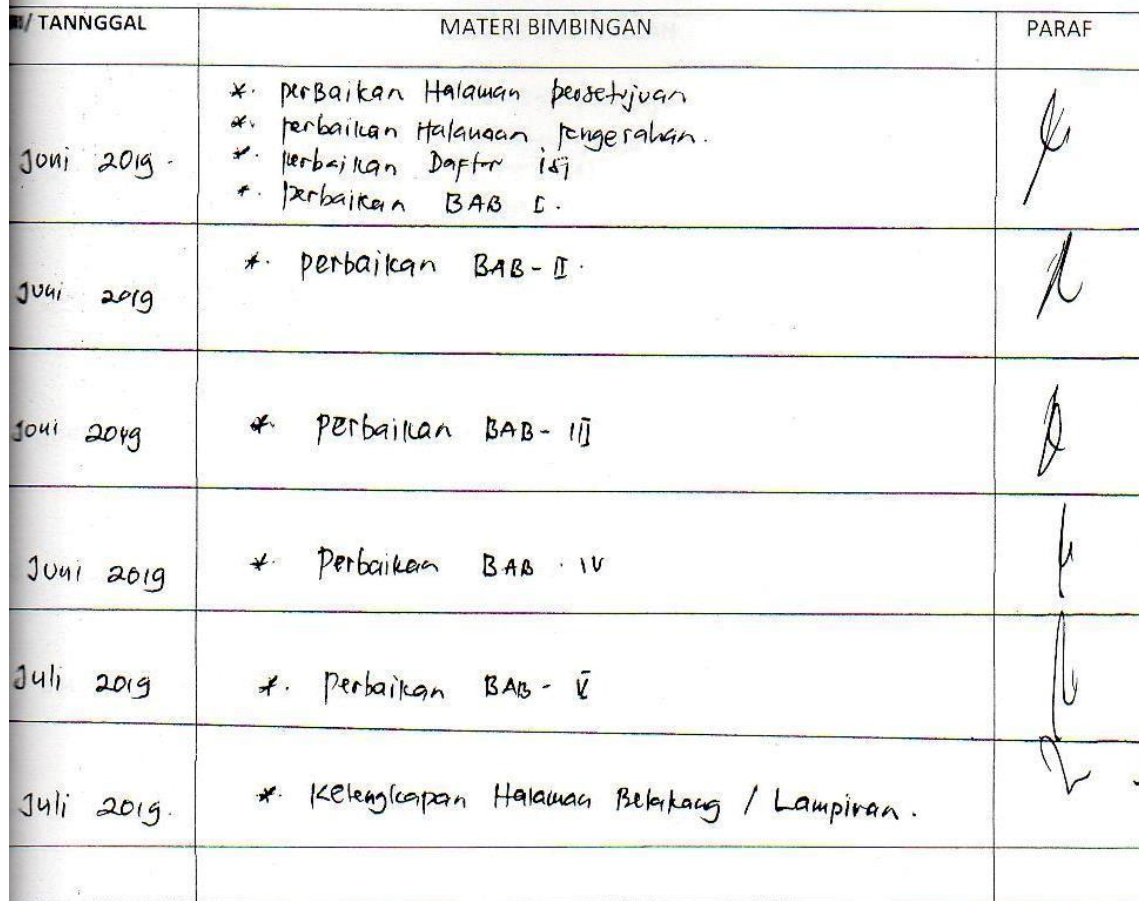 / TANNGGAL MATERI BIMBINGAN PARAF
*. perBaikan Halaman persetujuan
*. perbaikan Halaman pengesahan.
Juni 2019 - *. perbaikan Daftar isi
*. perbaikan BAB I.
Juni 2019 *. perbaikan BAB - II.
Juni 2019 *. perbaikan BAB - III
Juni 2019 *. Perbaikan BAB - IV
Juli 2019 *. Perbaikan BAB - V
Juli 2019. *. Kelengkapan Halaman Belakang / Lampiran.